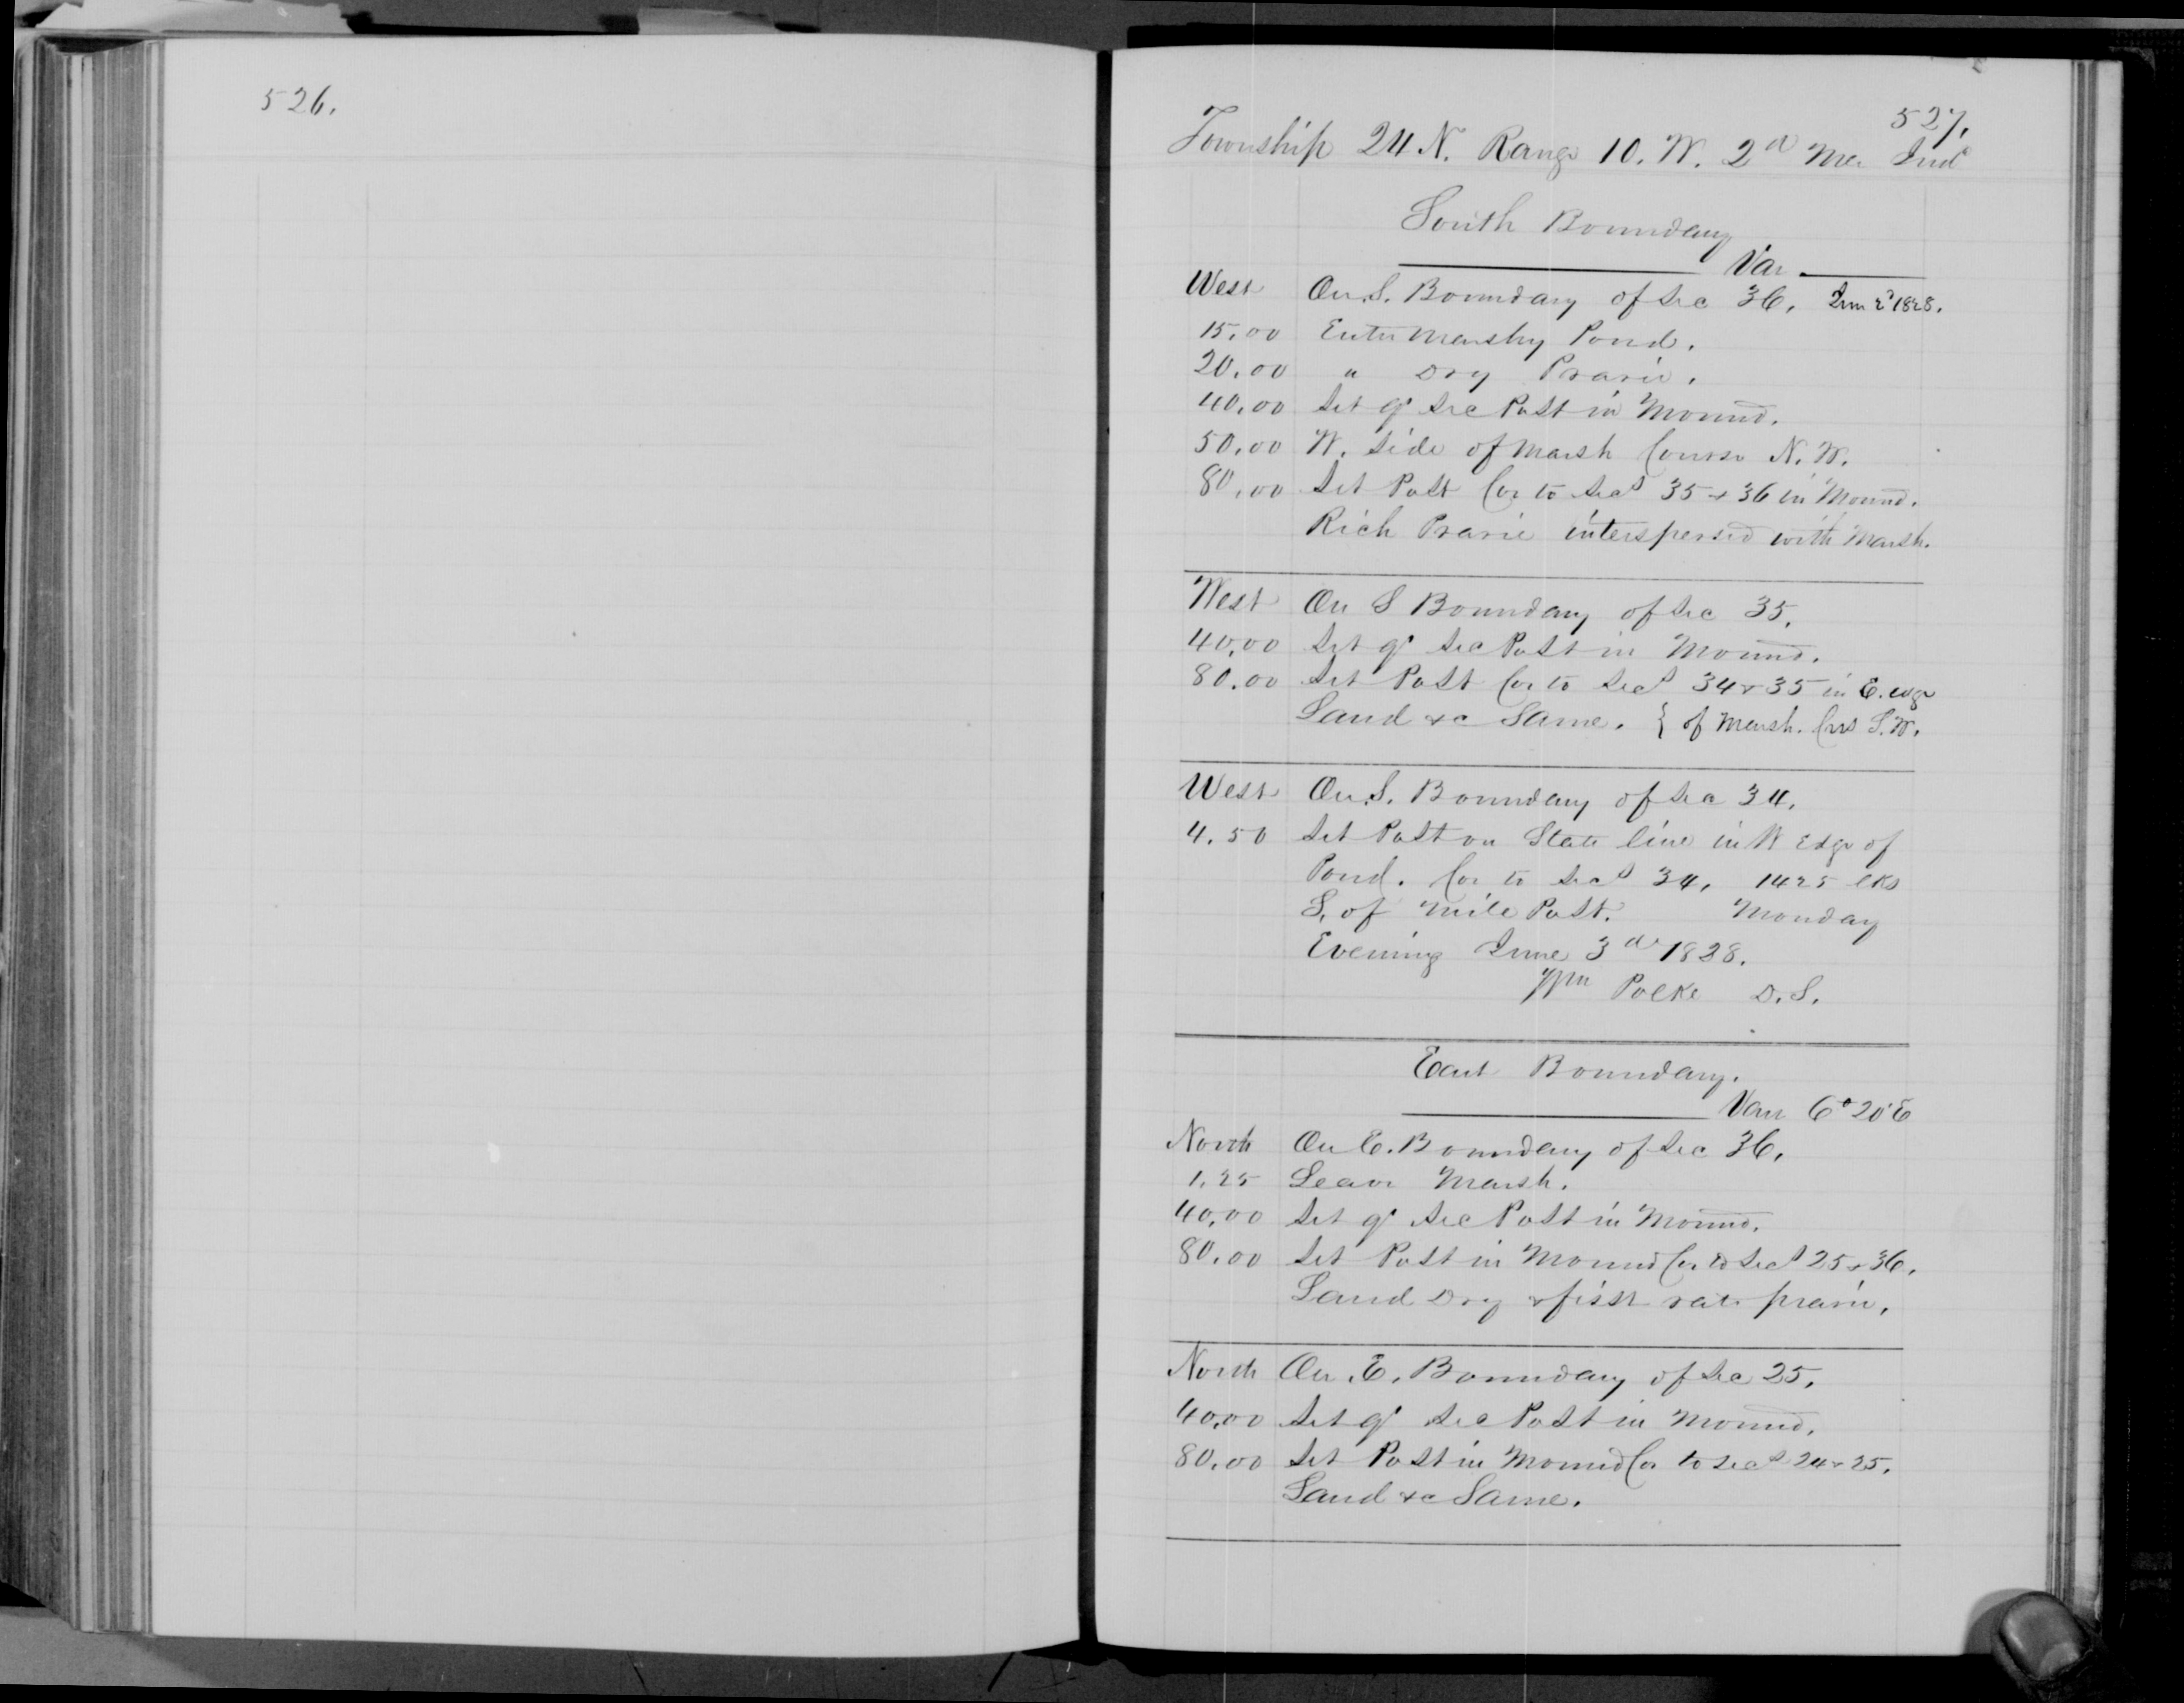 526.
527.
Township 24 N. Range 10. W. 2d Mer Ind
South Boundary
Var
West On S. Boundary of Sec 36. June 2d 1828.
15.00 Enter Marshy Pond.
20.00 " Dry Prarie.
40.00 Set qr Sec Post in Mound.
50.00 W. Side of Marsh Course N. W.
80.00 Set Post Cor to Secs 35 & 36 in Mound.
Rich Prarie interspersed with Marsh.
West On S Boundary of Sec 35.
40.00 Set qr Sec Post in Mound.
80.00 Set Post Cor to Secs 34 & 35 in E. edge
Land &c Same. { of Marsh. Crs S. W.
West On S. Boundary of Sec 34.
4.50 Set Post on State line in W Edge of
Pond. Cor to Secs 34, 1425 lks
S. of Mile Post. Monday
Evening June 3d 1828.
Wm Polke D. S.
East Boundary.
Var 6° 20' E
North On E. Boundary of Sec 36.
1.25 Leave Marsh.
40.00 Set qr Sec Post in Mound.
80.00 Set Post in Mound Cor to Secs 25 & 36.
Land Dry & first rate prarie.
North On E. Boundary of Sec 25.
40.00 Set qr Sec Post in Mound.
80.00 Set Post in Mound Cor to Secs 24 & 25.
Land &c Same.